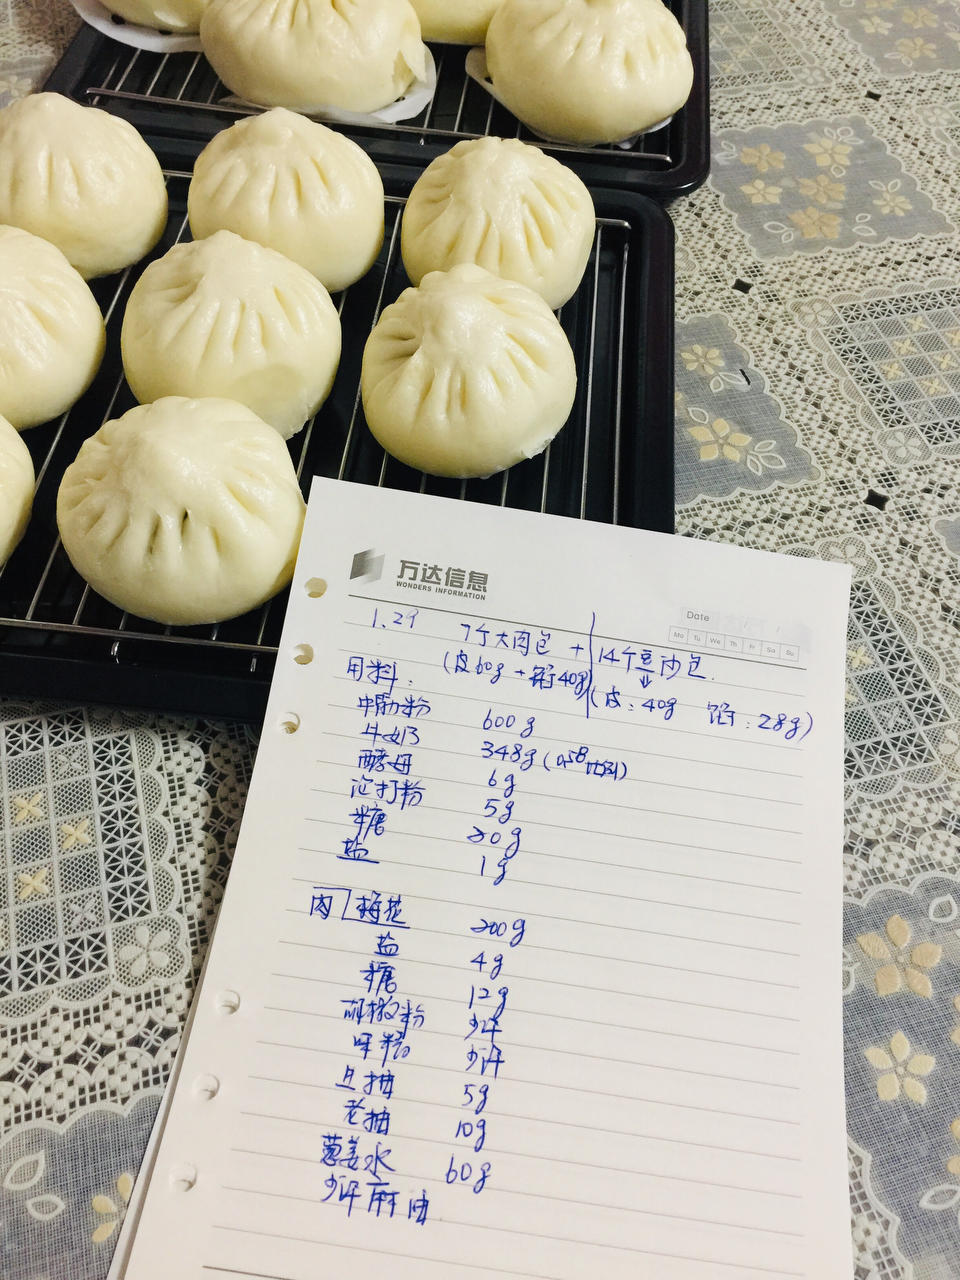 万达信息
WONDERS INFORMATION
Date
Mo Tu We Th Fr Sa Su
1.29 7个大肉包 + 14个豆沙包.
(皮60g + 馅40g) (皮:40g 馅:28g)
用料:
中筋粉 600g
牛奶 348g (0.58比例)
酵母 6g
泡打粉 5g
糖 20g
盐 1g
肉 梅花 200g
盐 4g
糖 12g
胡椒粉 少许
味精 少许
生抽 5g
老抽 10g
葱姜水 60g
少许麻油